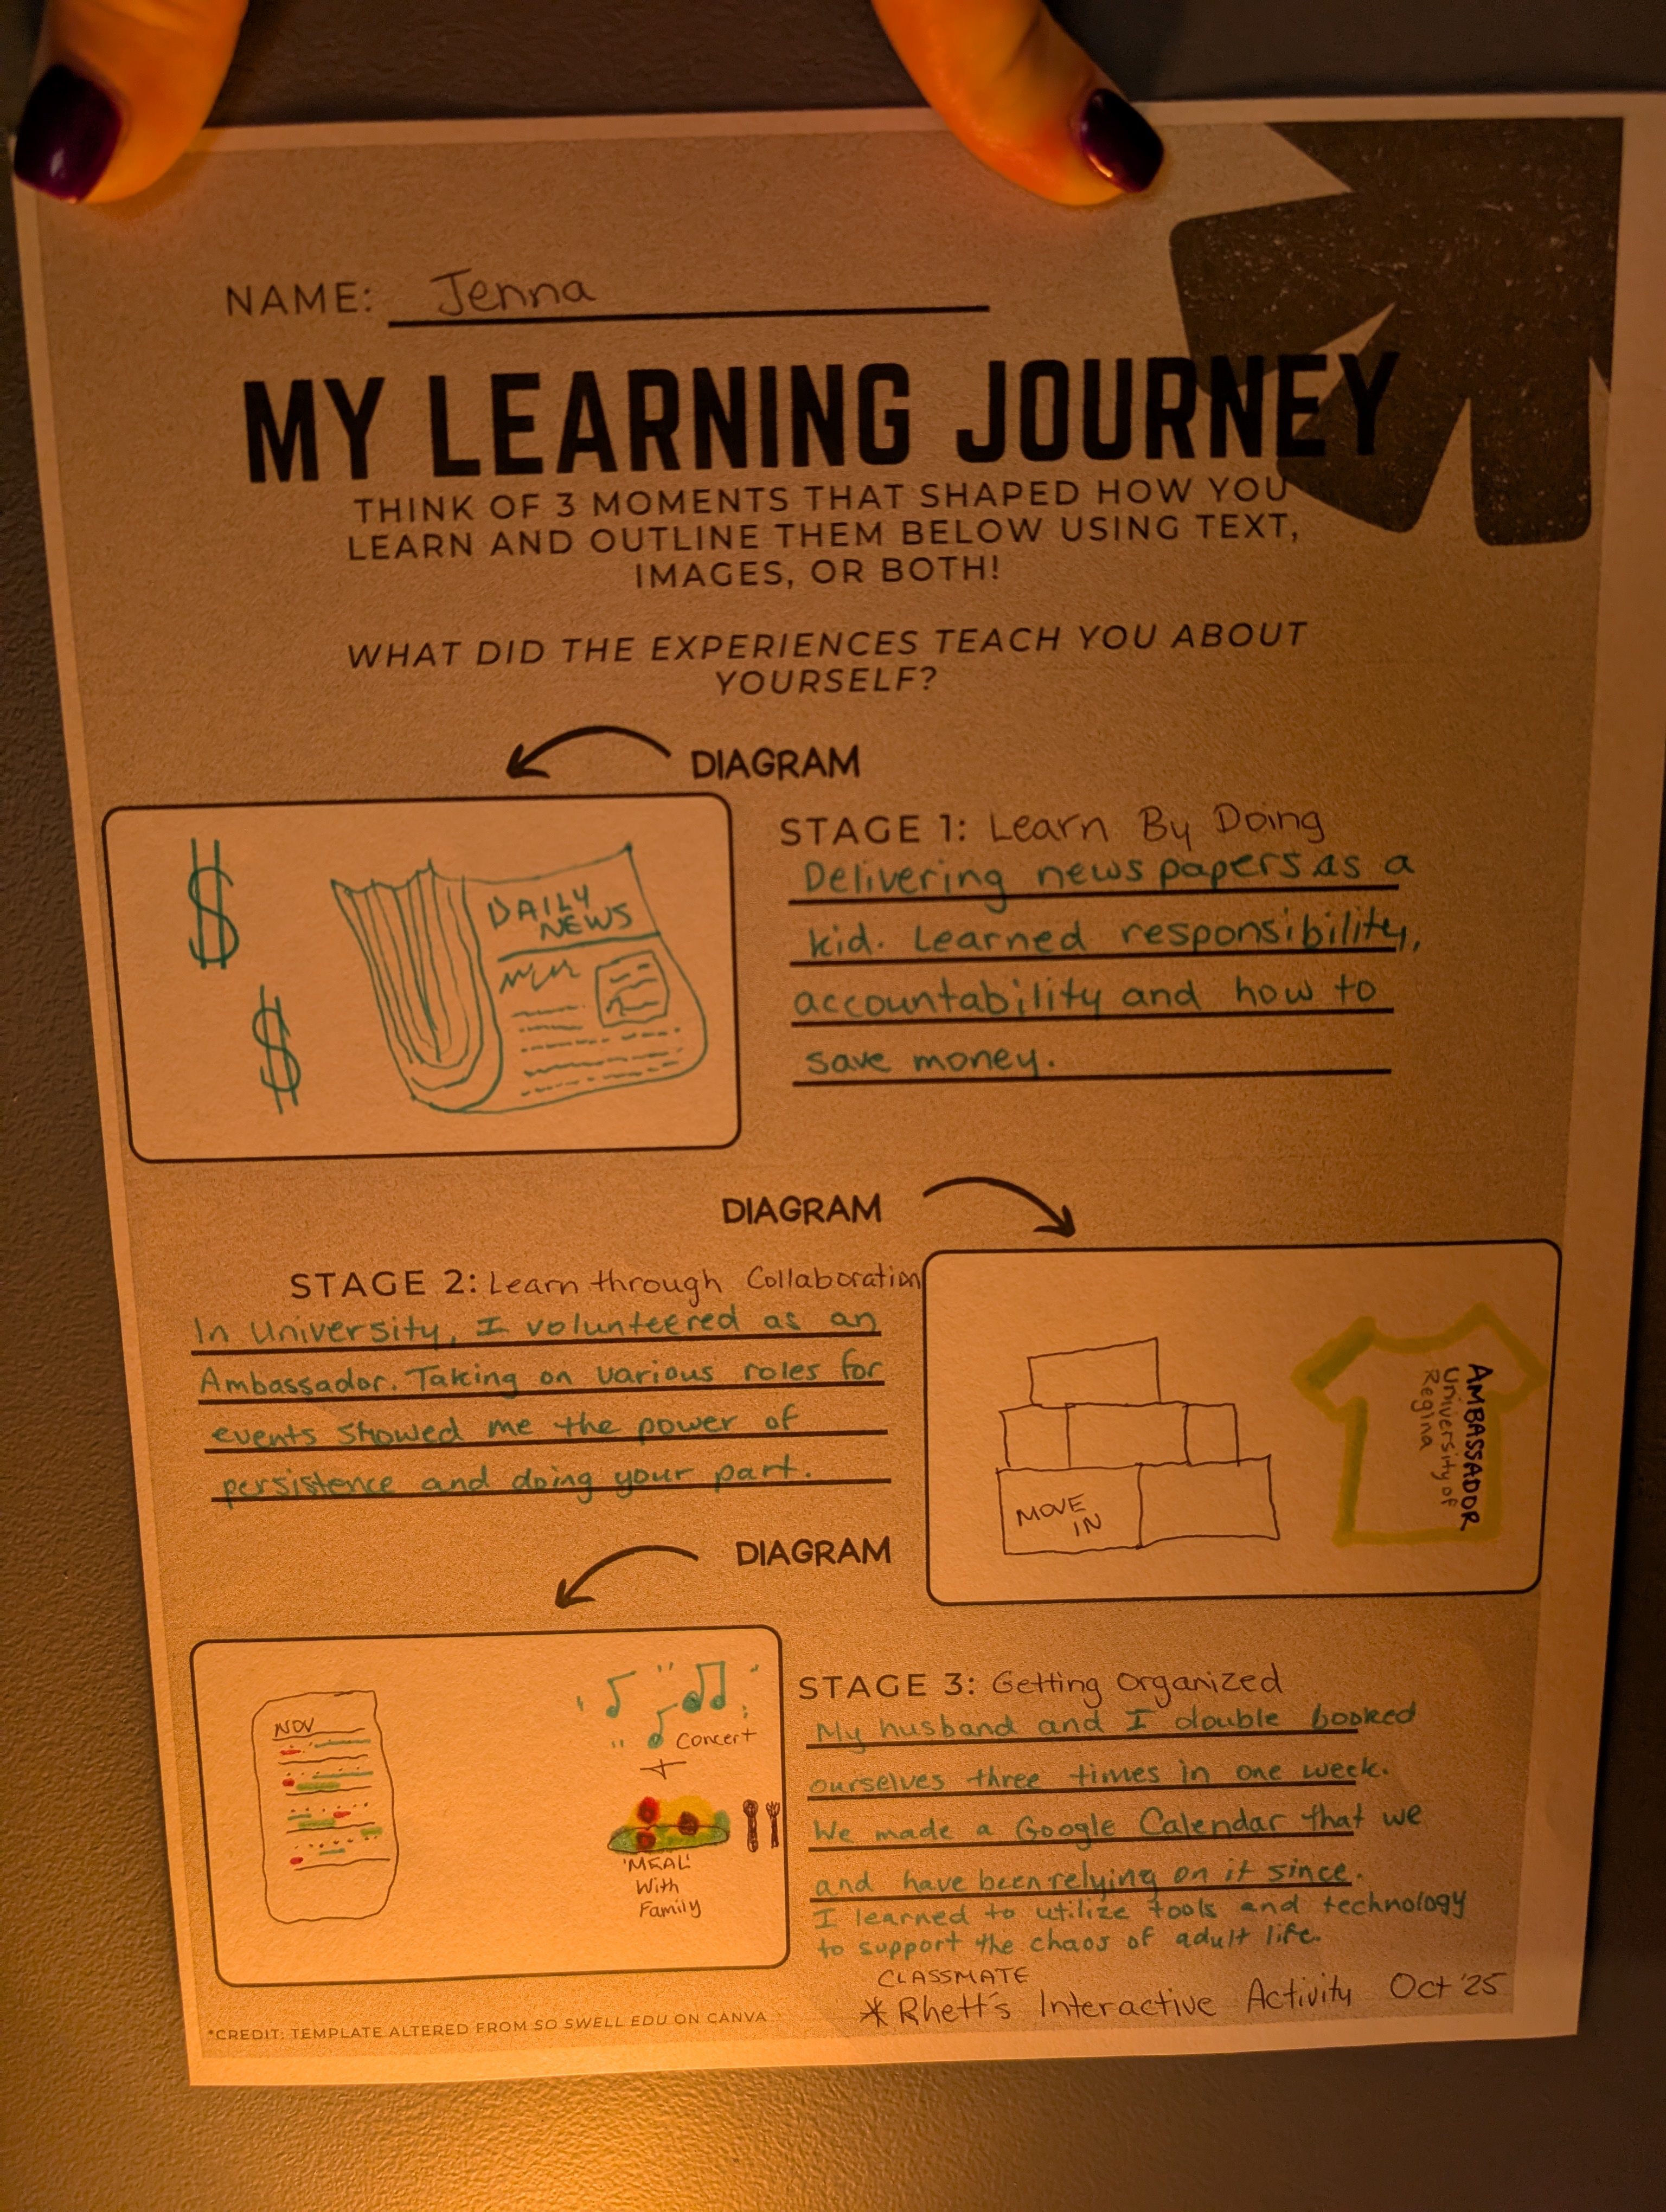 NAME: Jenna
MY LEARNING JOURNEY
THINK OF 3 MOMENTS THAT SHAPED HOW YOU
LEARN AND OUTLINE THEM BELOW USING TEXT,
IMAGES, OR BOTH!
WHAT DID THE EXPERIENCES TEACH YOU ABOUT
YOURSELF?
DIAGRAM
$
$
DAILY
NEWS
STAGE 1: Learn By Doing
Delivering newspapers as a
kid. Learned responsibility,
accountability and how to
save money.
DIAGRAM
STAGE 2: Learn through Collaboration
In University, I volunteered as an
Ambassador. Taking on various roles for
events showed me the power of
persistence and doing your part.
MOVE
IN
AMBASSADOR
University of
Regina
DIAGRAM
NOV
Concert
+
'MEAL'
With
Family
STAGE 3: Getting Organized
My husband and I double booked
ourselves three times in one week.
We made a Google Calendar that we
and have been relying on it since.
I learned to utilize tools and technology
to support the chaos of adult life.
CLASSMATE
* Rhett's Interactive Activity Oct '25
*CREDIT: TEMPLATE ALTERED FROM SO SWELL EDU ON CANVA